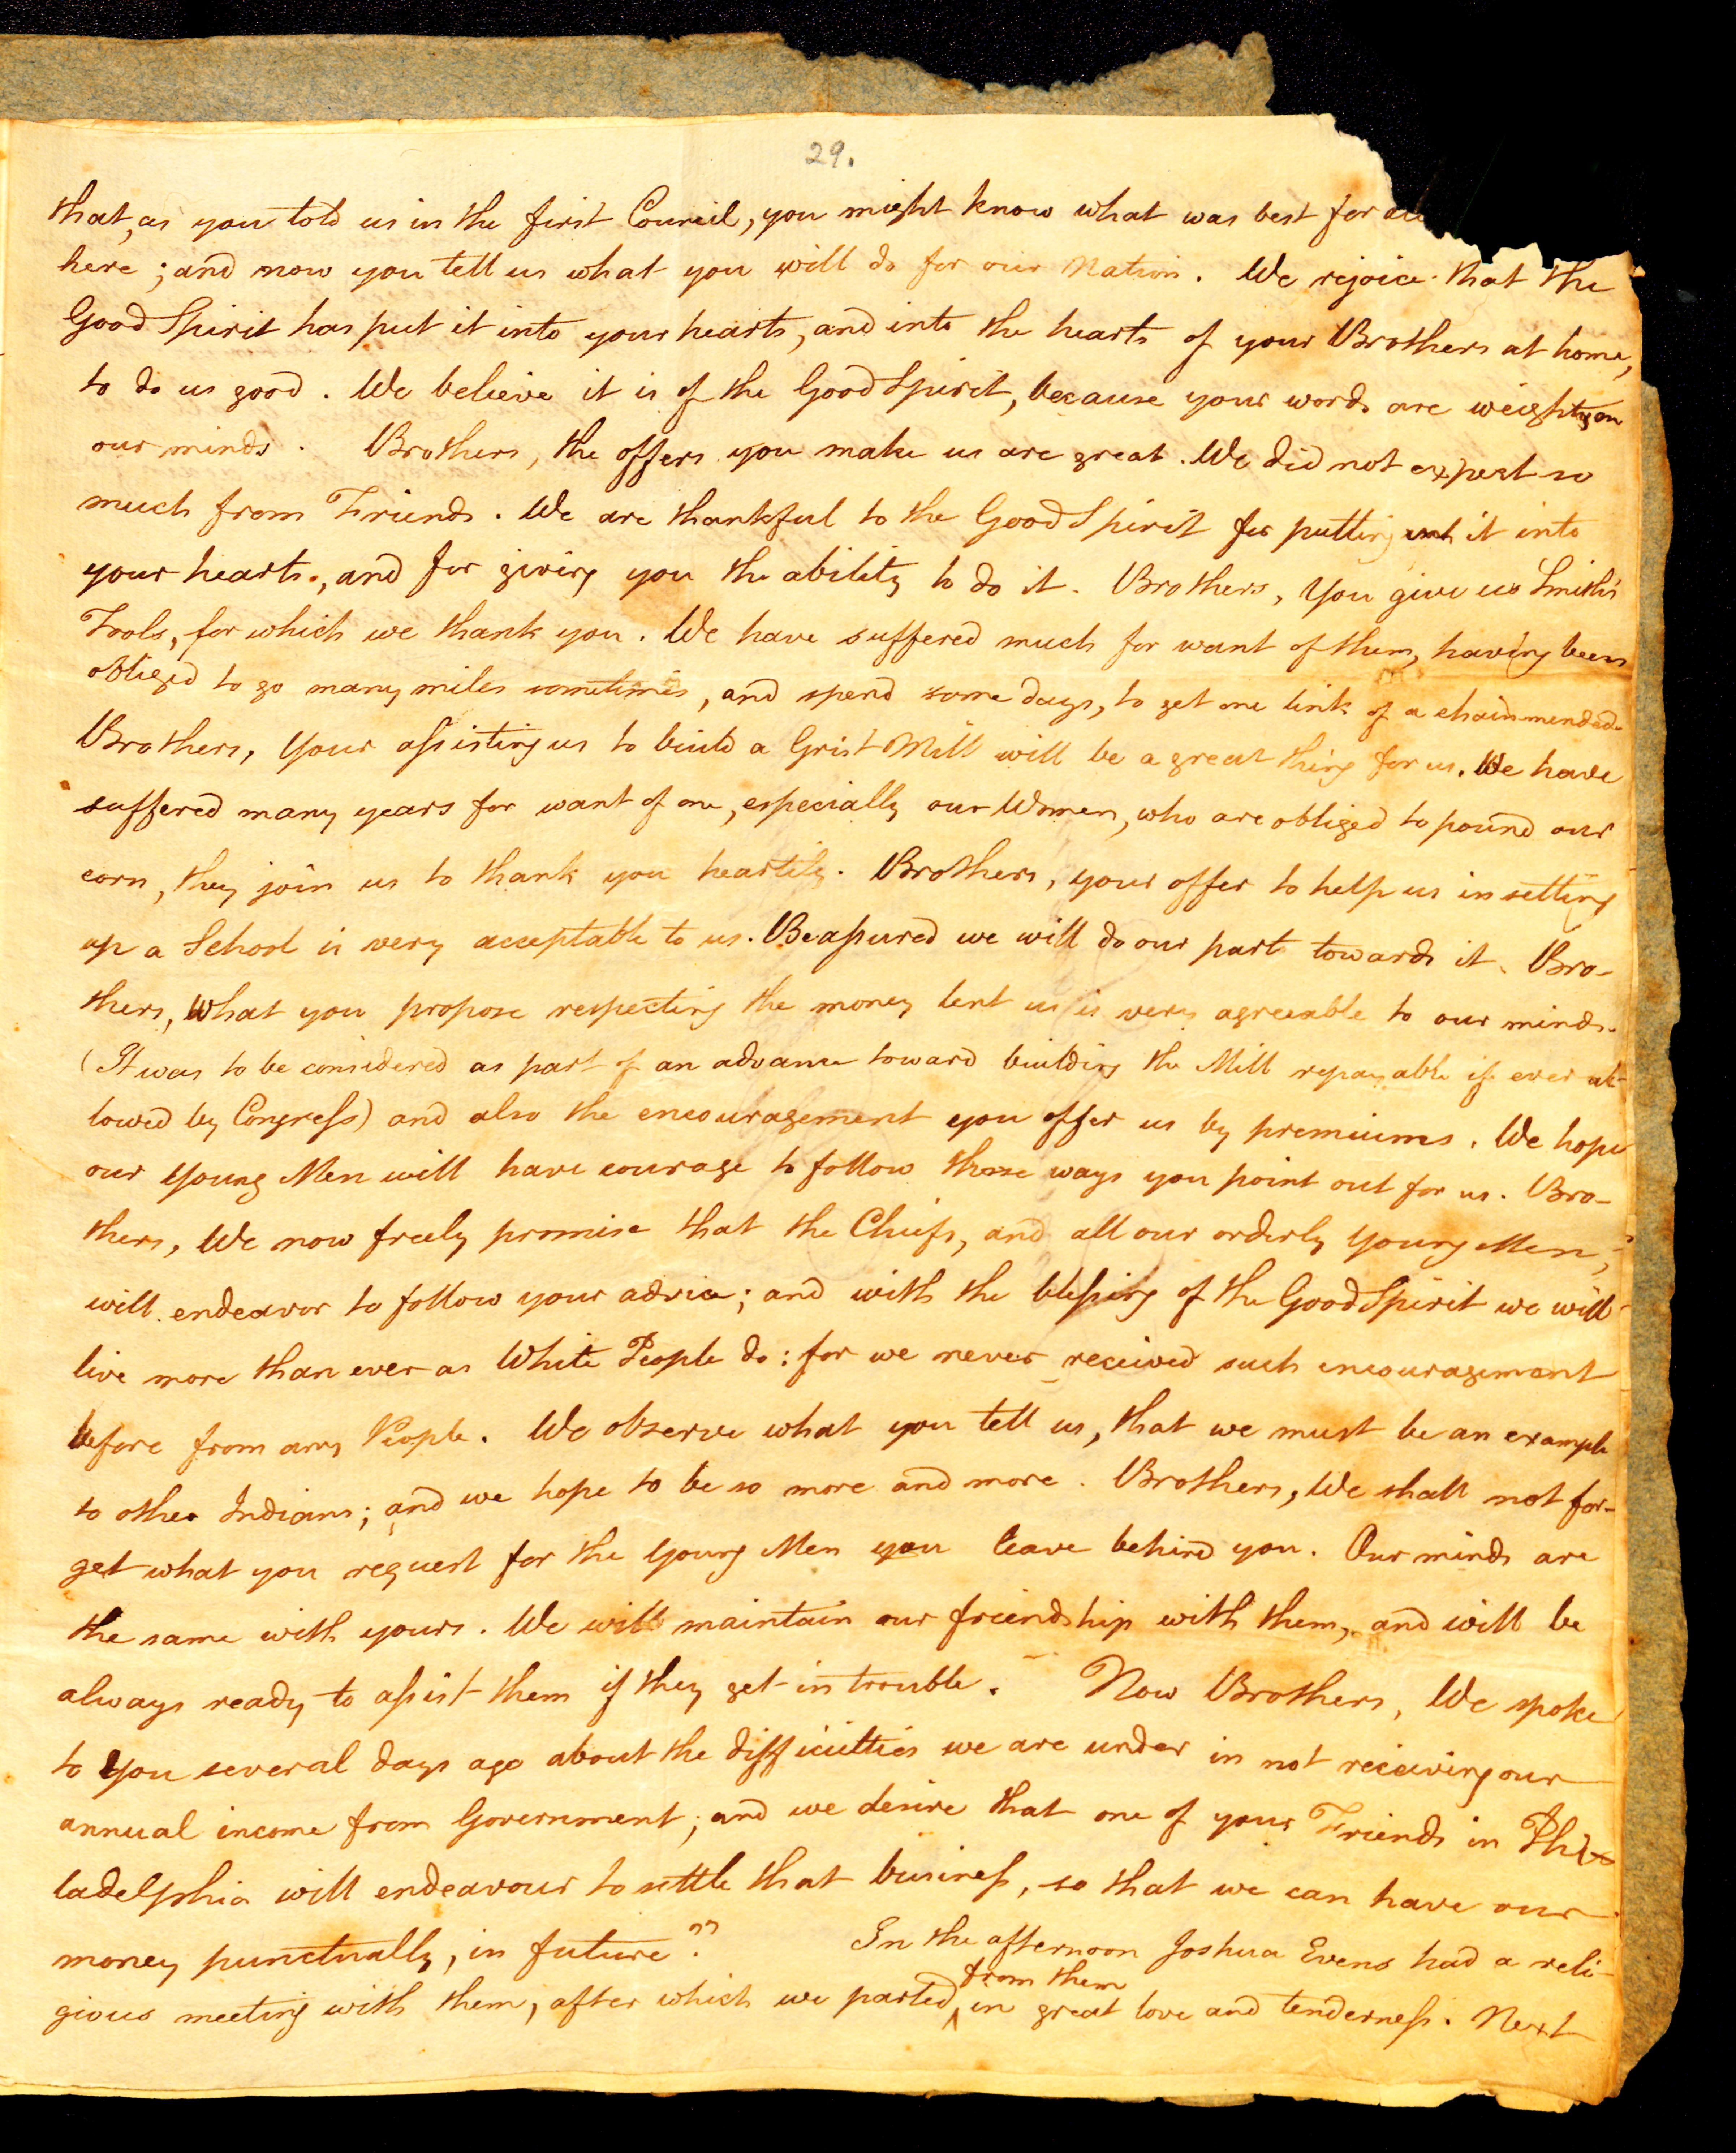 29.
that, as you told us in the first Council, you might know what was best for
here; and now you tell us what you will do for our Nation. We rejoice that the
Good Spirit has put it into your hearts, and into the hearts of your Brothers at home,
to do us good. We believe it is of the Good Spirit, because your words are weighty on
our minds. Brothers, the offers you make us are great. We did not expect so
much from Friends. We are thankful to the Good Spirit for putting it into
your hearts, and for giving you the ability to do it. Brothers, You give us Smith's
Tools, for which we thank you. We have suffered much for want of them, having been
obliged to go many miles sometimes, and spend some days, to get one link of a chain mended.
Brothers, Your assisting us to build a Grist Mill will be a great thing for us. We have
suffered many years for want of one, especially our Women, who are obliged to pound our
corn, they join us to thank you heartily. Brothers, your offer to help us in setting
up a School is very acceptable to us. Be assured we will do our part towards it. Bro-
thers, What you propose respecting the money lent us is very agreeable to our minds.
(It was to be considered as part of an advance toward building the Mill repayable if ever al-
lowed by Congress) and also the encouragement you offer us by premiums. We hope
our Young Men will have courage to follow those ways you point out for us. Bro-
thers, We now freely promise that the Chiefs, and all our orderly Young Men,
will endeavor to follow your advice; and with the blessing of the Good Spirit we will
live more than ever as White People do: for we never received such encouragement
before from any People. We observe what you tell us, that we must be an example
to other Indians; and we hope to be so more and more. Brothers, We shall not for-
get what you request for the Young Men you leave behind you. Our minds are
the same with yours. We will maintain our friendship with them, and will be
always ready to assist them if they get in trouble. Now Brothers, We spoke
to You several days ago about the difficulties we are under in not receiving our
annual income from Government; and we desire that one of your Friends in Phi-
ladelphia will endeavour to settle that business, so that we can have our
money punctually, in future." In the afternoon Joshua Evens had a reli-
from them
gious meeting with them, after which we parted ^ in great love and tenderness. Next